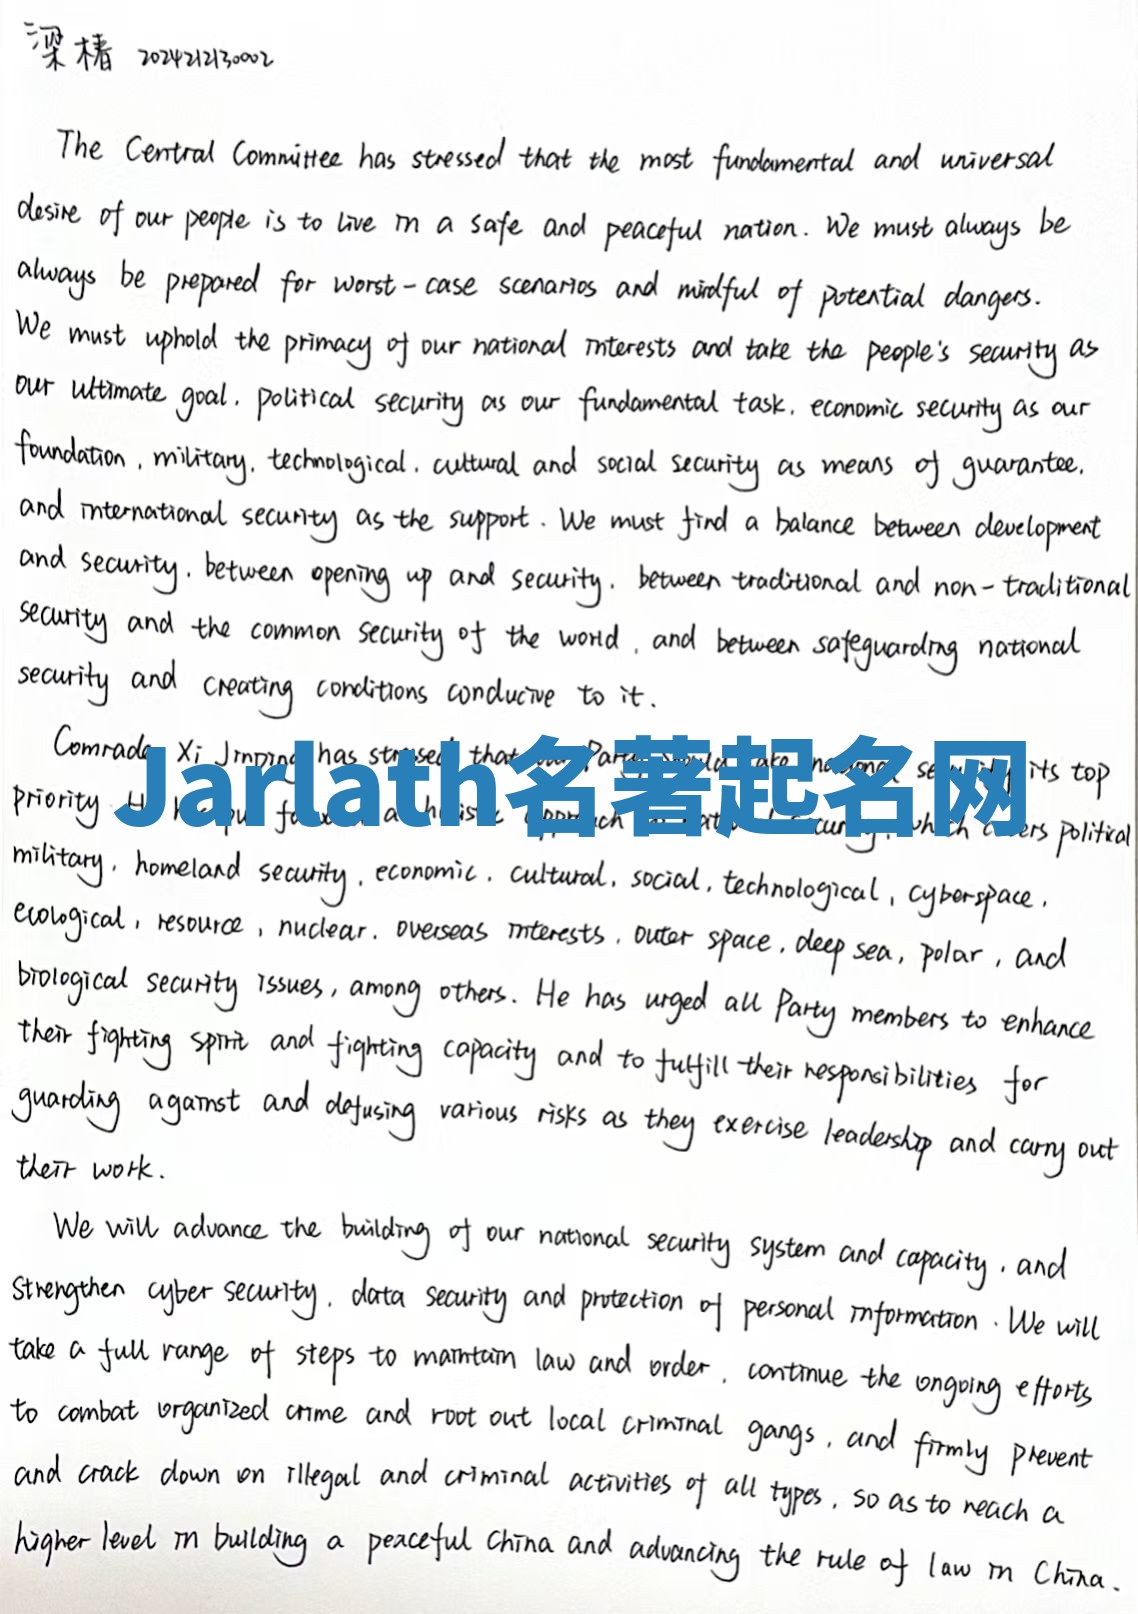 梁椿 2024212130002
The Central Committee has stressed that the most fundamental and universal
desire of our people is to live in a safe and peaceful nation. We must always be
always be prepared for worst-case scenarios and mindful of potential dangers.
We must uphold the primacy of our national interests and take the people's security as
our ultimate goal, political security as our fundamental task, economic security as our
foundation, military, technological, cultural and social security as means of guarantee,
and international security as the support. We must find a balance between development
and security, between opening up and security, between traditional and non-traditional
security and the common security of the world, and between safeguarding national
security and creating conditions conducive to it.
Comrade Xi Jinping has stressed that Party national its top
Jarlath名著起名网
priority. He has put a holistic approach security, which covers political
military, homeland security, economic, cultural, social, technological, cyberspace,
ecological, resource, nuclear, overseas interests, outer space, deep sea, polar, and
biological security issues, among others. He has urged all Party members to enhance
their fighting spirit and fighting capacity and to fulfill their responsibilities for
guarding against and defusing various risks as they exercise leadership and carry out
their work.
We will advance the building of our national security system and capacity, and
strengthen cyber security, data security and protection of personal information. We will
take a full range of steps to maintain law and order, continue the ongoing efforts
to combat organized crime and root out local criminal gangs, and firmly prevent
and crack down on illegal and criminal activities of all types, so as to reach a
higher level in building a peaceful China and advancing the rule of law in China.